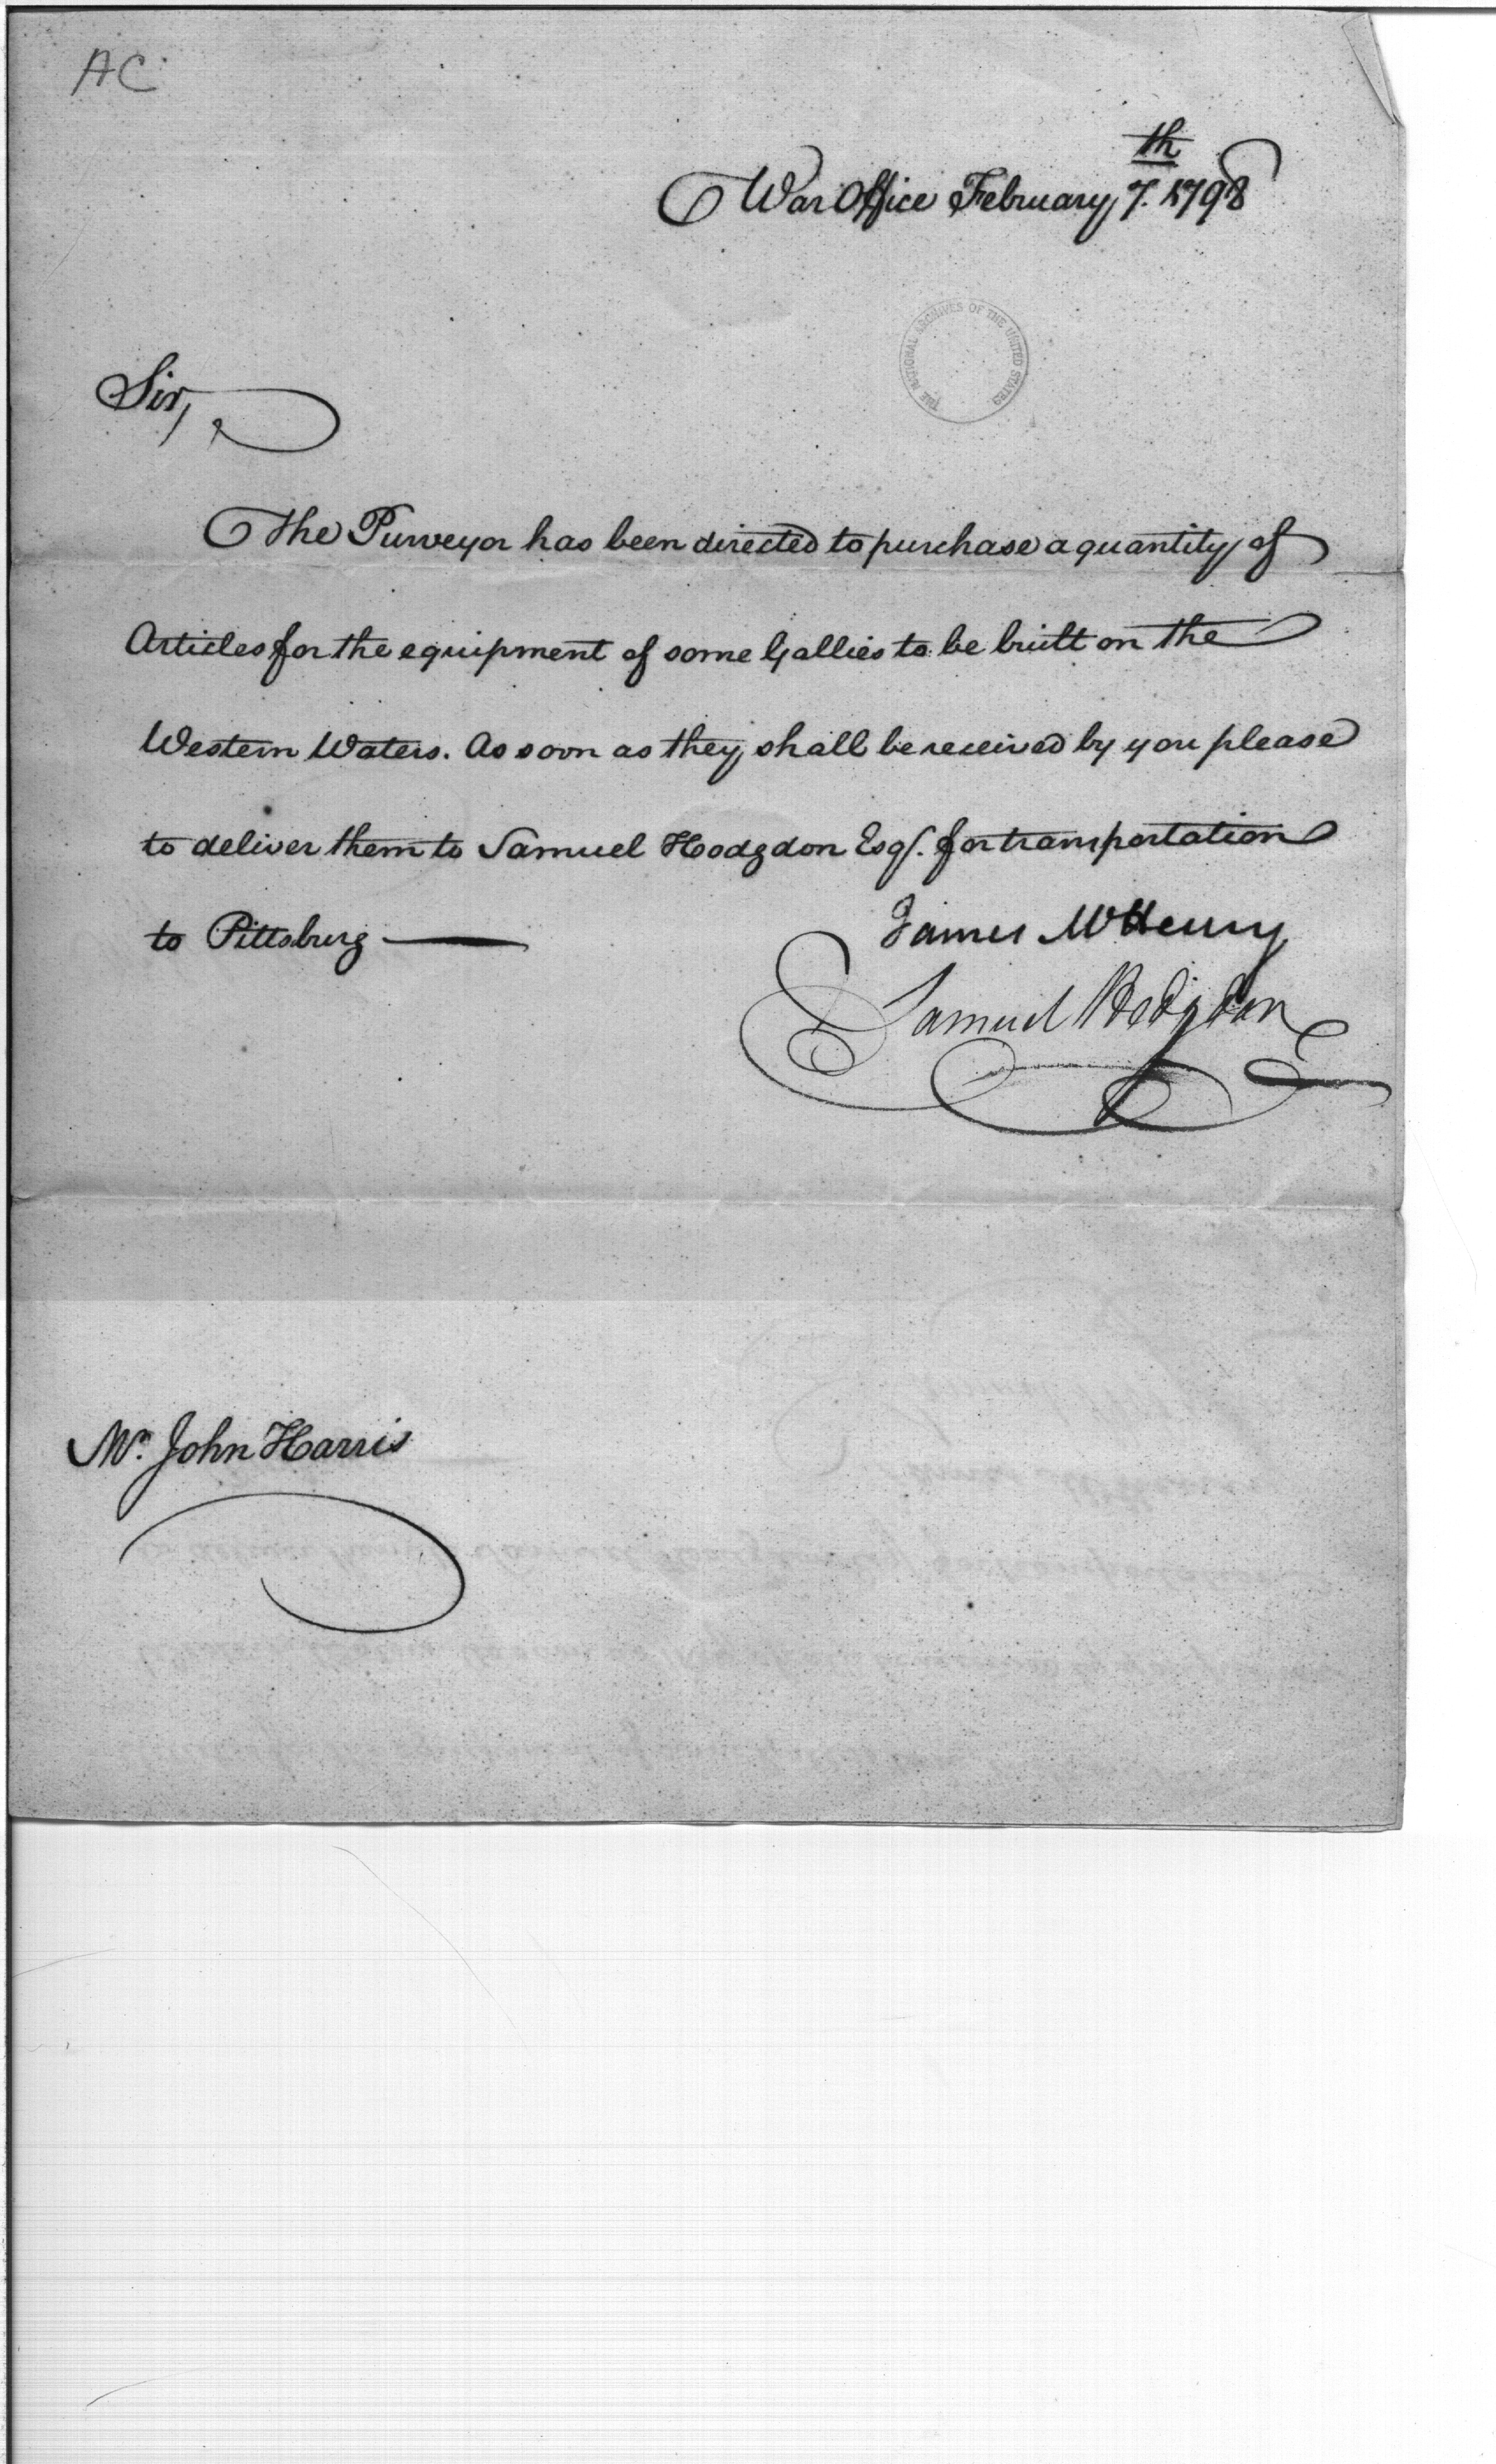 AC
War Office February 7.th 1798
THE NATIONAL ARCHIVES OF THE UNITED STATES
Sir,
The Purveyor has been directed to purchase a quantity of
Articles for the equipment of some Gallies to be built on the
Western Waters. As soon as they shall be received by you please
to deliver them to Samuel Hodgdon Esqr. for transportation
to Pittsburg —
James McHenry
Samuel Hodgdon
Mr. John Harris